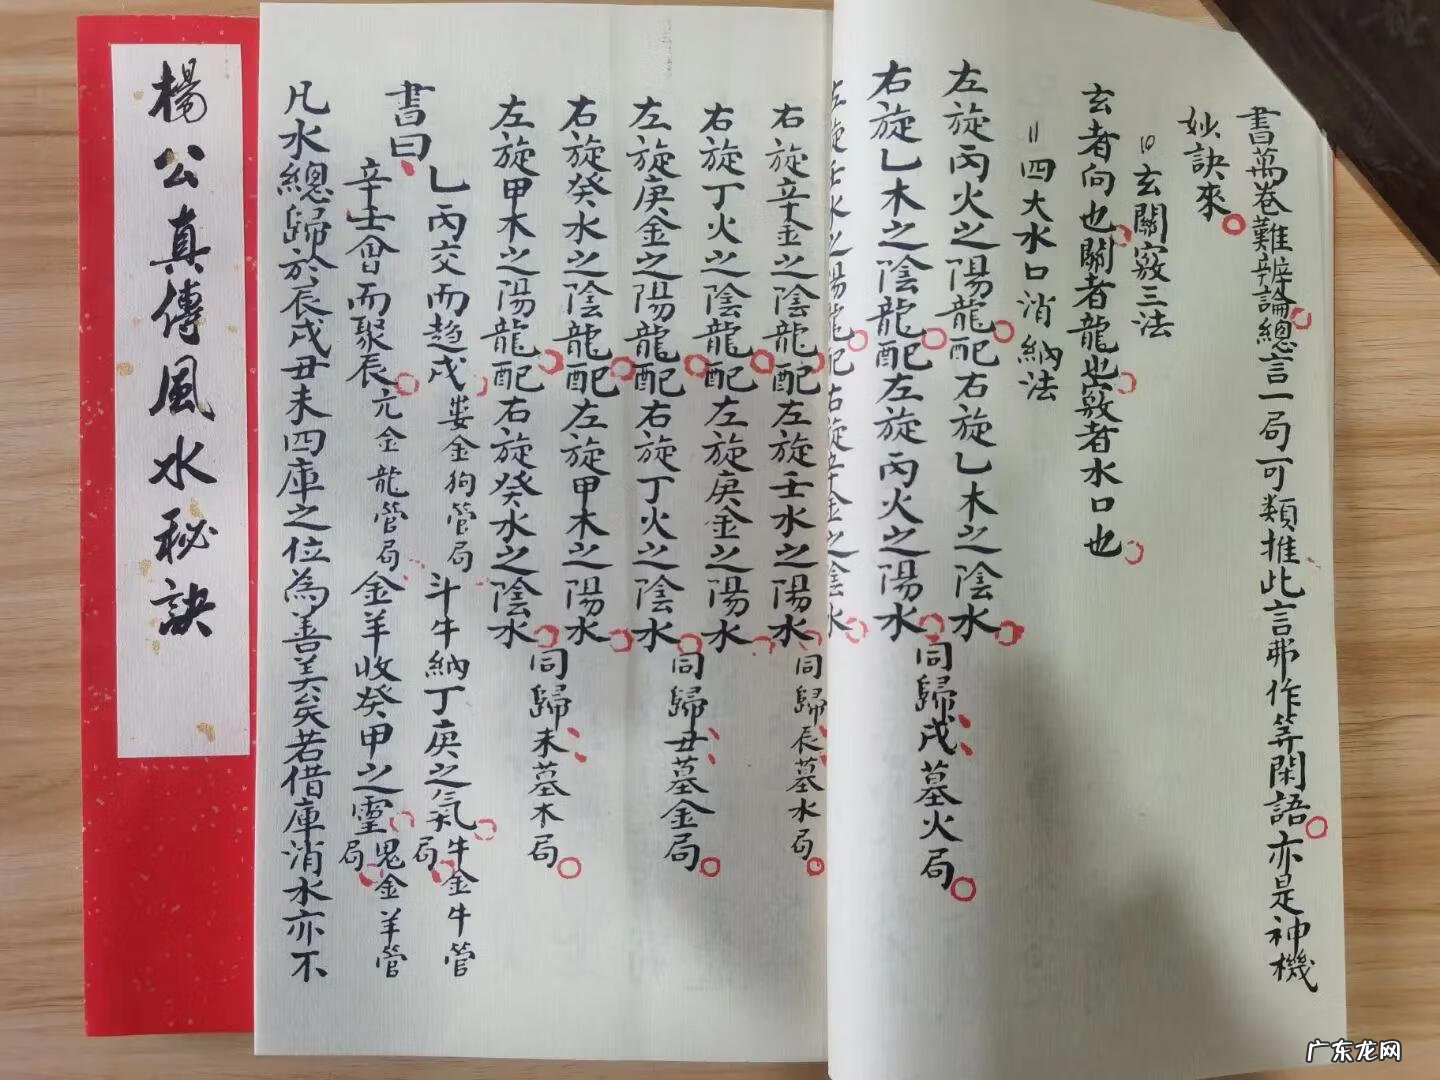 書萬卷難辨論總言一局可類推此言弗作等閑語亦是神機
妙訣來
玄關竅三法
玄者向也關者龍也竅者水口也
四大水口消納法
左旋丙火之陽龍配右旋乙木之陰水
右旋乙木之陰龍配左旋丙火之陽水
同歸戌墓火局
左旋壬水之陽龍配右旋辛金之陰水
右旋辛金之陰龍配左旋壬水之陽水
同歸辰墓水局
右旋丁火之陰龍配左旋庚金之陽水
左旋庚金之陽龍配右旋丁火之陰水
同歸丑墓金局
右旋癸水之陰龍配左旋甲木之陽水
左旋甲木之陽龍配右旋癸水之陰水
同歸未墓木局
書曰
乙丙交而趨戌婁金狗管局斗牛納丁庚之氣牛金牛管局
辛壬會而聚辰亢金龍管局金羊收癸甲之靈鬼金羊管局
凡水總歸於辰戌丑未四庫之位為善美矣若借庫消水亦不
楊公真傳風水秘訣
广东龙网